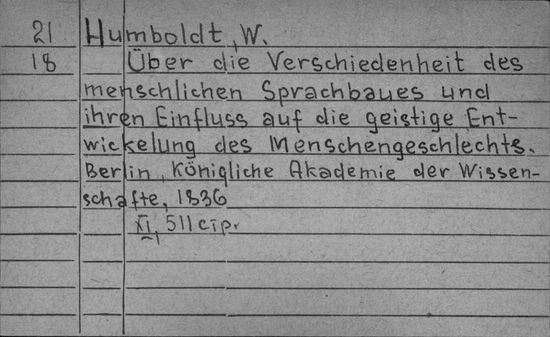 21 Humboldt, W.
18 Über die Verschiedenheit des
menschlichen Sprachbaues und
ihren Einfluss auf die geistige Ent-
wickelung des Menschengeschlechts.
Berlin, Königliche Akademie der Wissen-
schafte, 1836
XI, 511 cīp.